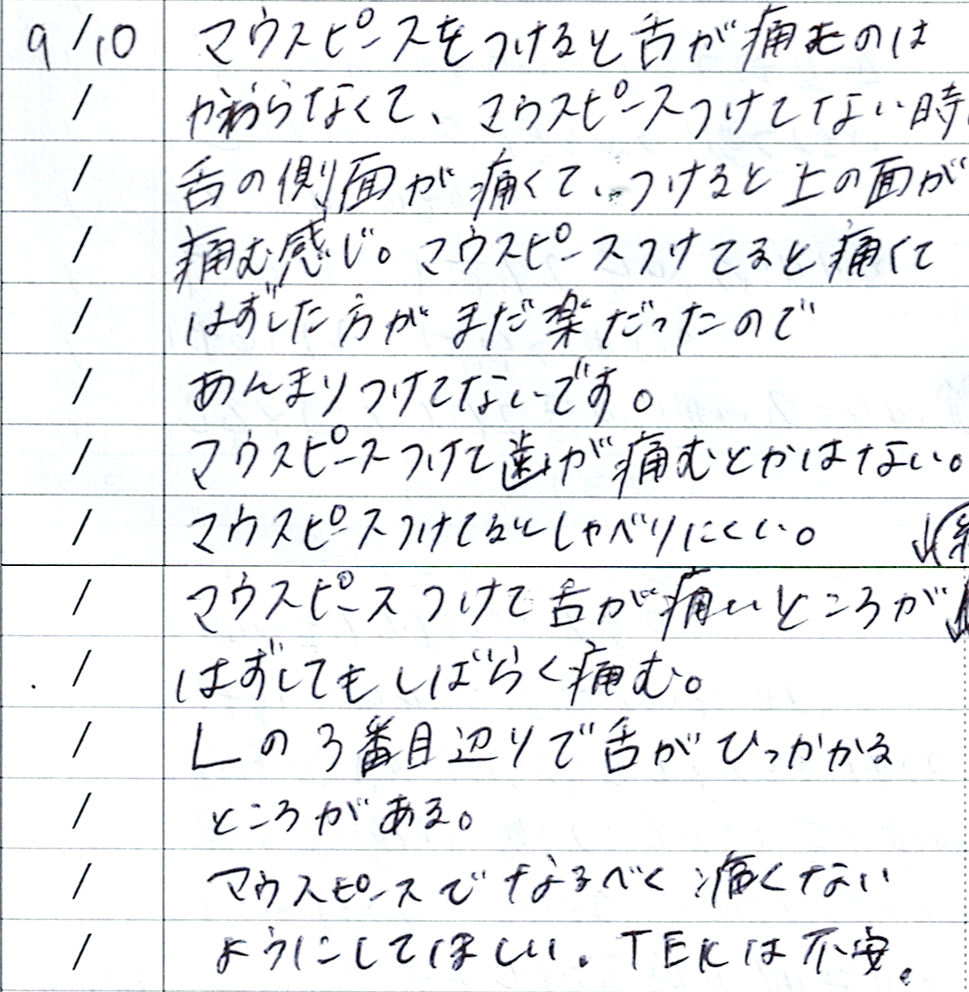 9/10 マウスピースをつけると舌が痛むのは
/ かわらなくて、マウスピースつけてない時、
/ 舌の側面が痛くて、つけると上の面が
/ 痛む感じ。マウスピースつけてると痛くて
/ はずした方がまだ楽だったので
/ あんまりつけてないです。
/ マウスピースつけて歯が痛むとかはない。
/ マウスピースつけてるとしゃべりにくい。 ↓
/ マウスピースつけて舌が痛いところが
/ はずしてもしばらく痛む。
/ Lの3番目辺りで舌がひっかかる
/ ところがある。
/ マウスピースでなるべく痛くない
/ ようにしてほしい。TEKは不安。